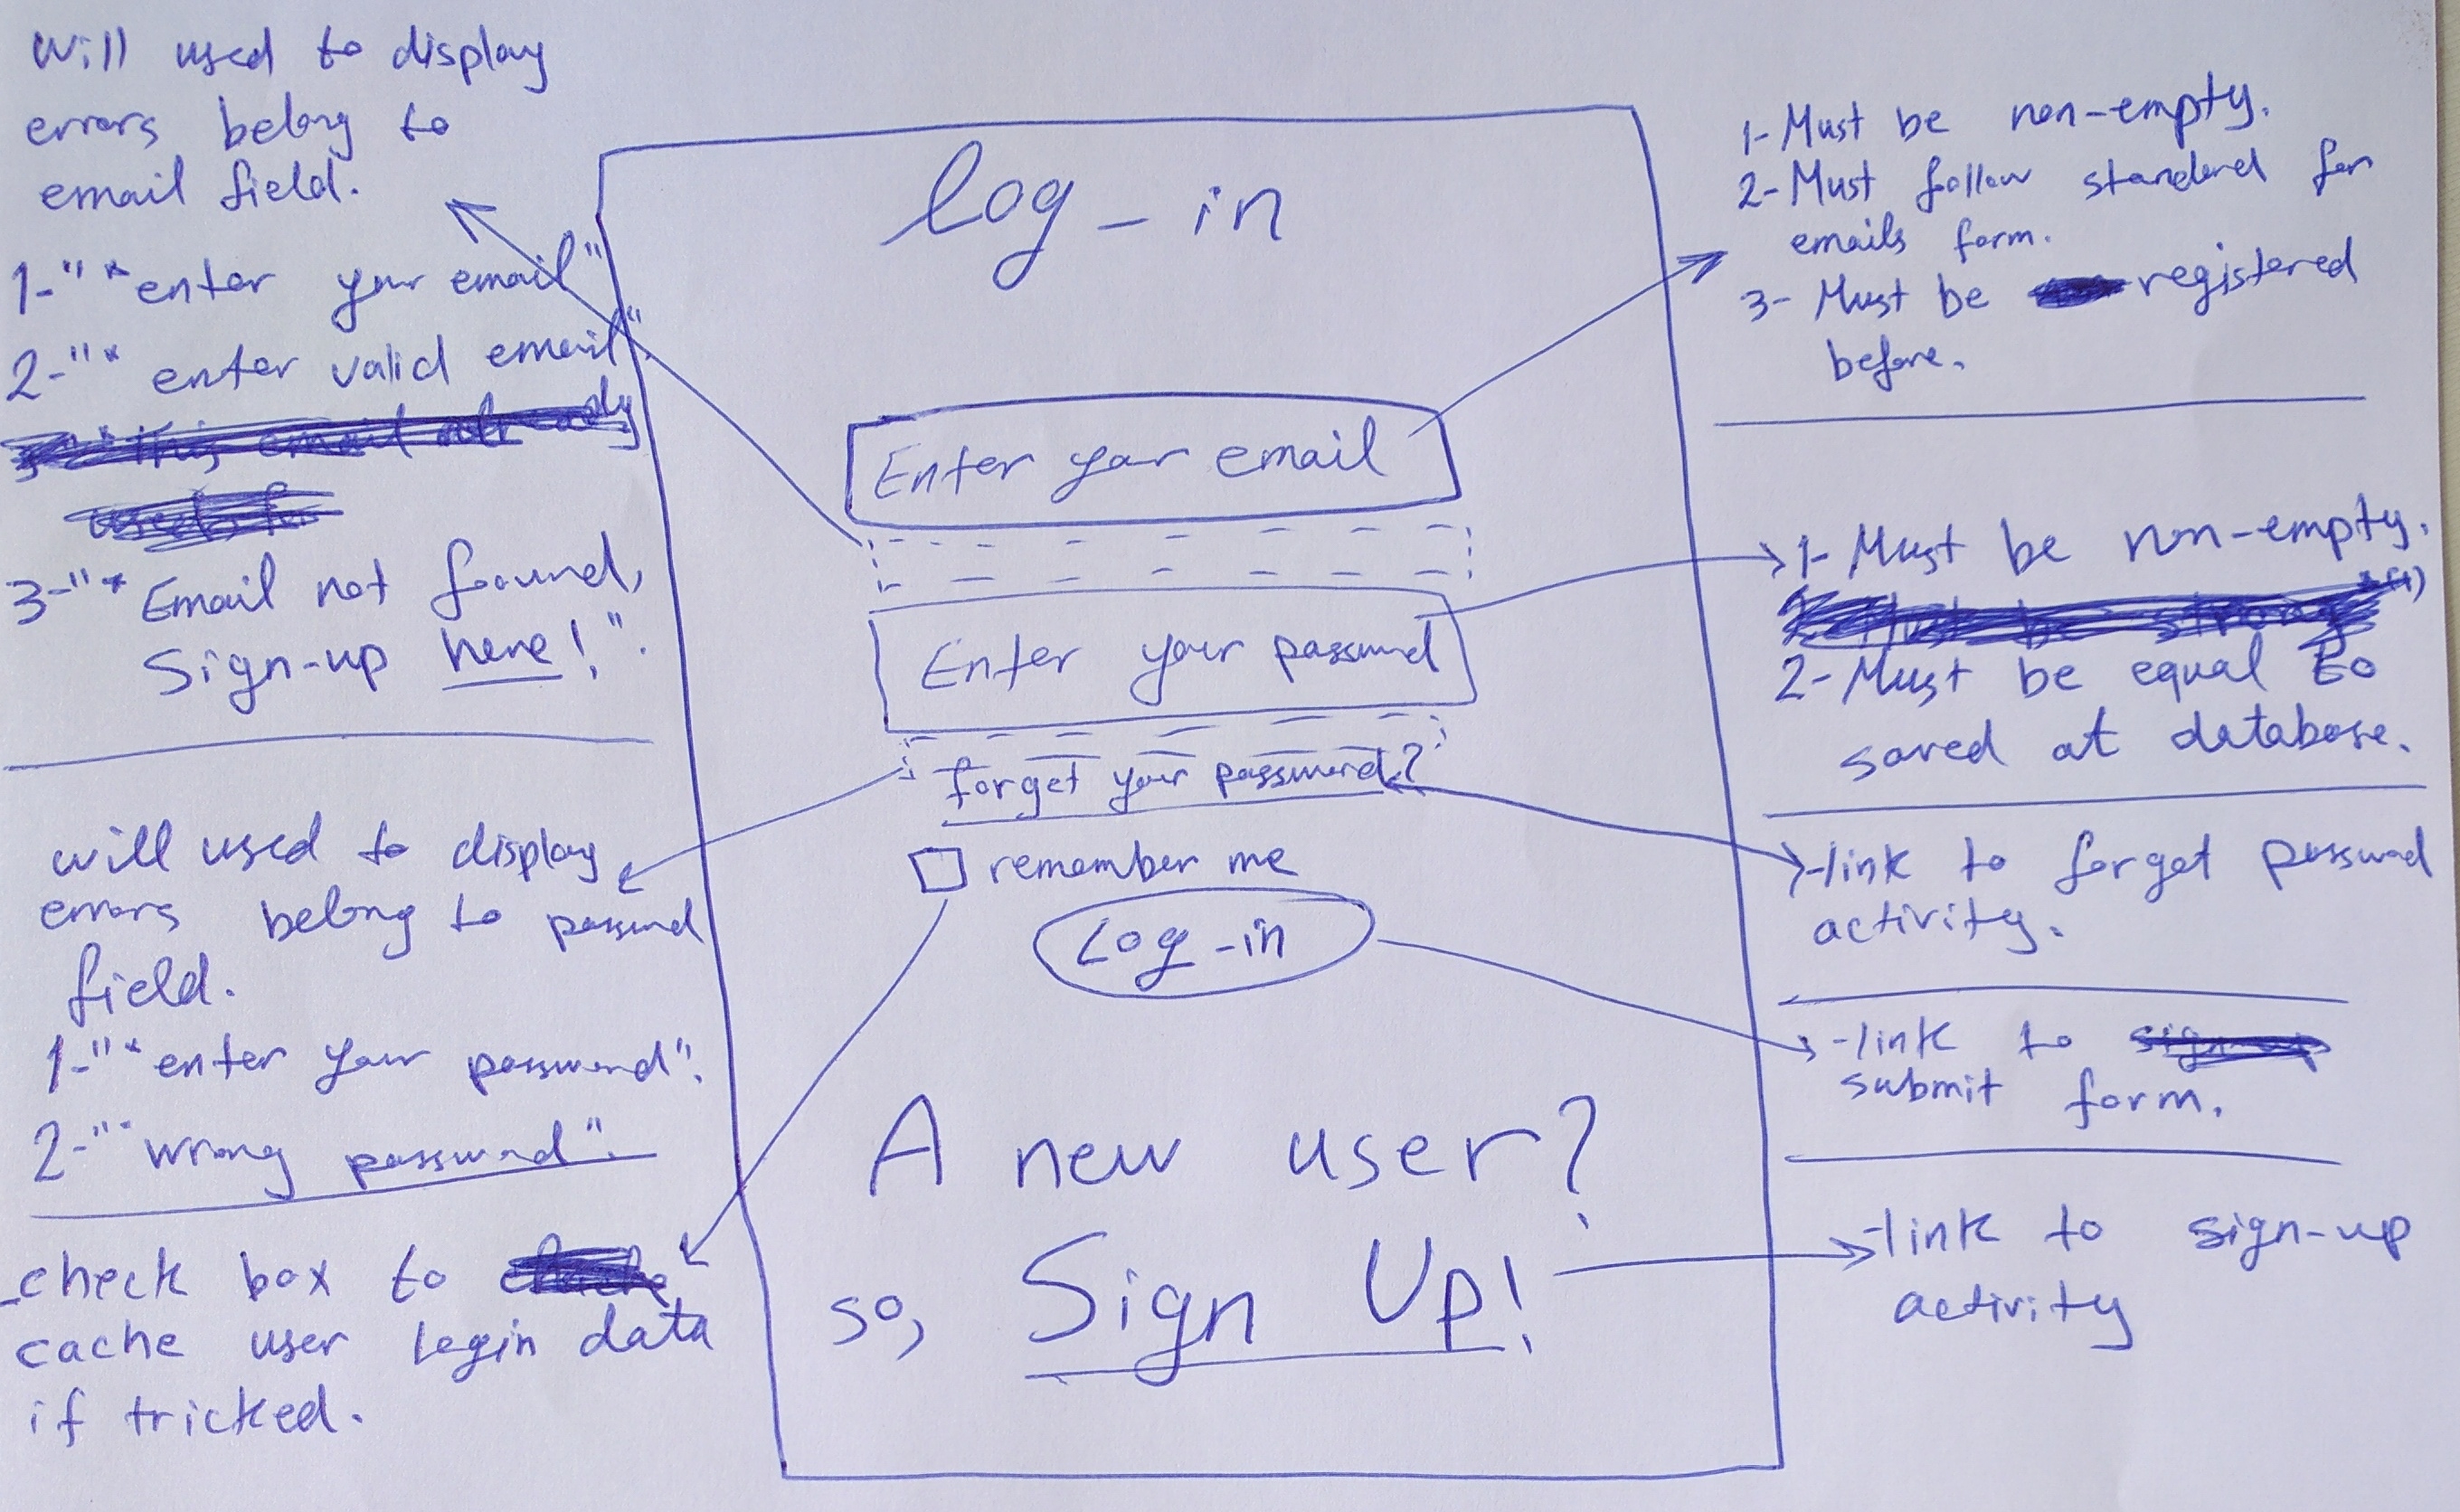 will used to display
errors belong to
email field.
1-"*enter your email"
2-"* enter valid email".
3-"* Email not found,
Sign-up here!".
will used to display
errors belong to password
field.
1-"*enter your password".
2-"*wrong password".
-check box to
cache user login data
if tricked.
log-in
Enter your email
Enter your password
forget your password?
remember me
Log-in
A new user?
so, Sign Up!
1-Must be non-empty.
2-Must follow standerd for
emails form.
3- Must be registered
before.
1-Must be non-empty.
2-Must be equal to
saved at database.
-link to forget password
activity.
-link to
submit form.
-link to sign-up
activity